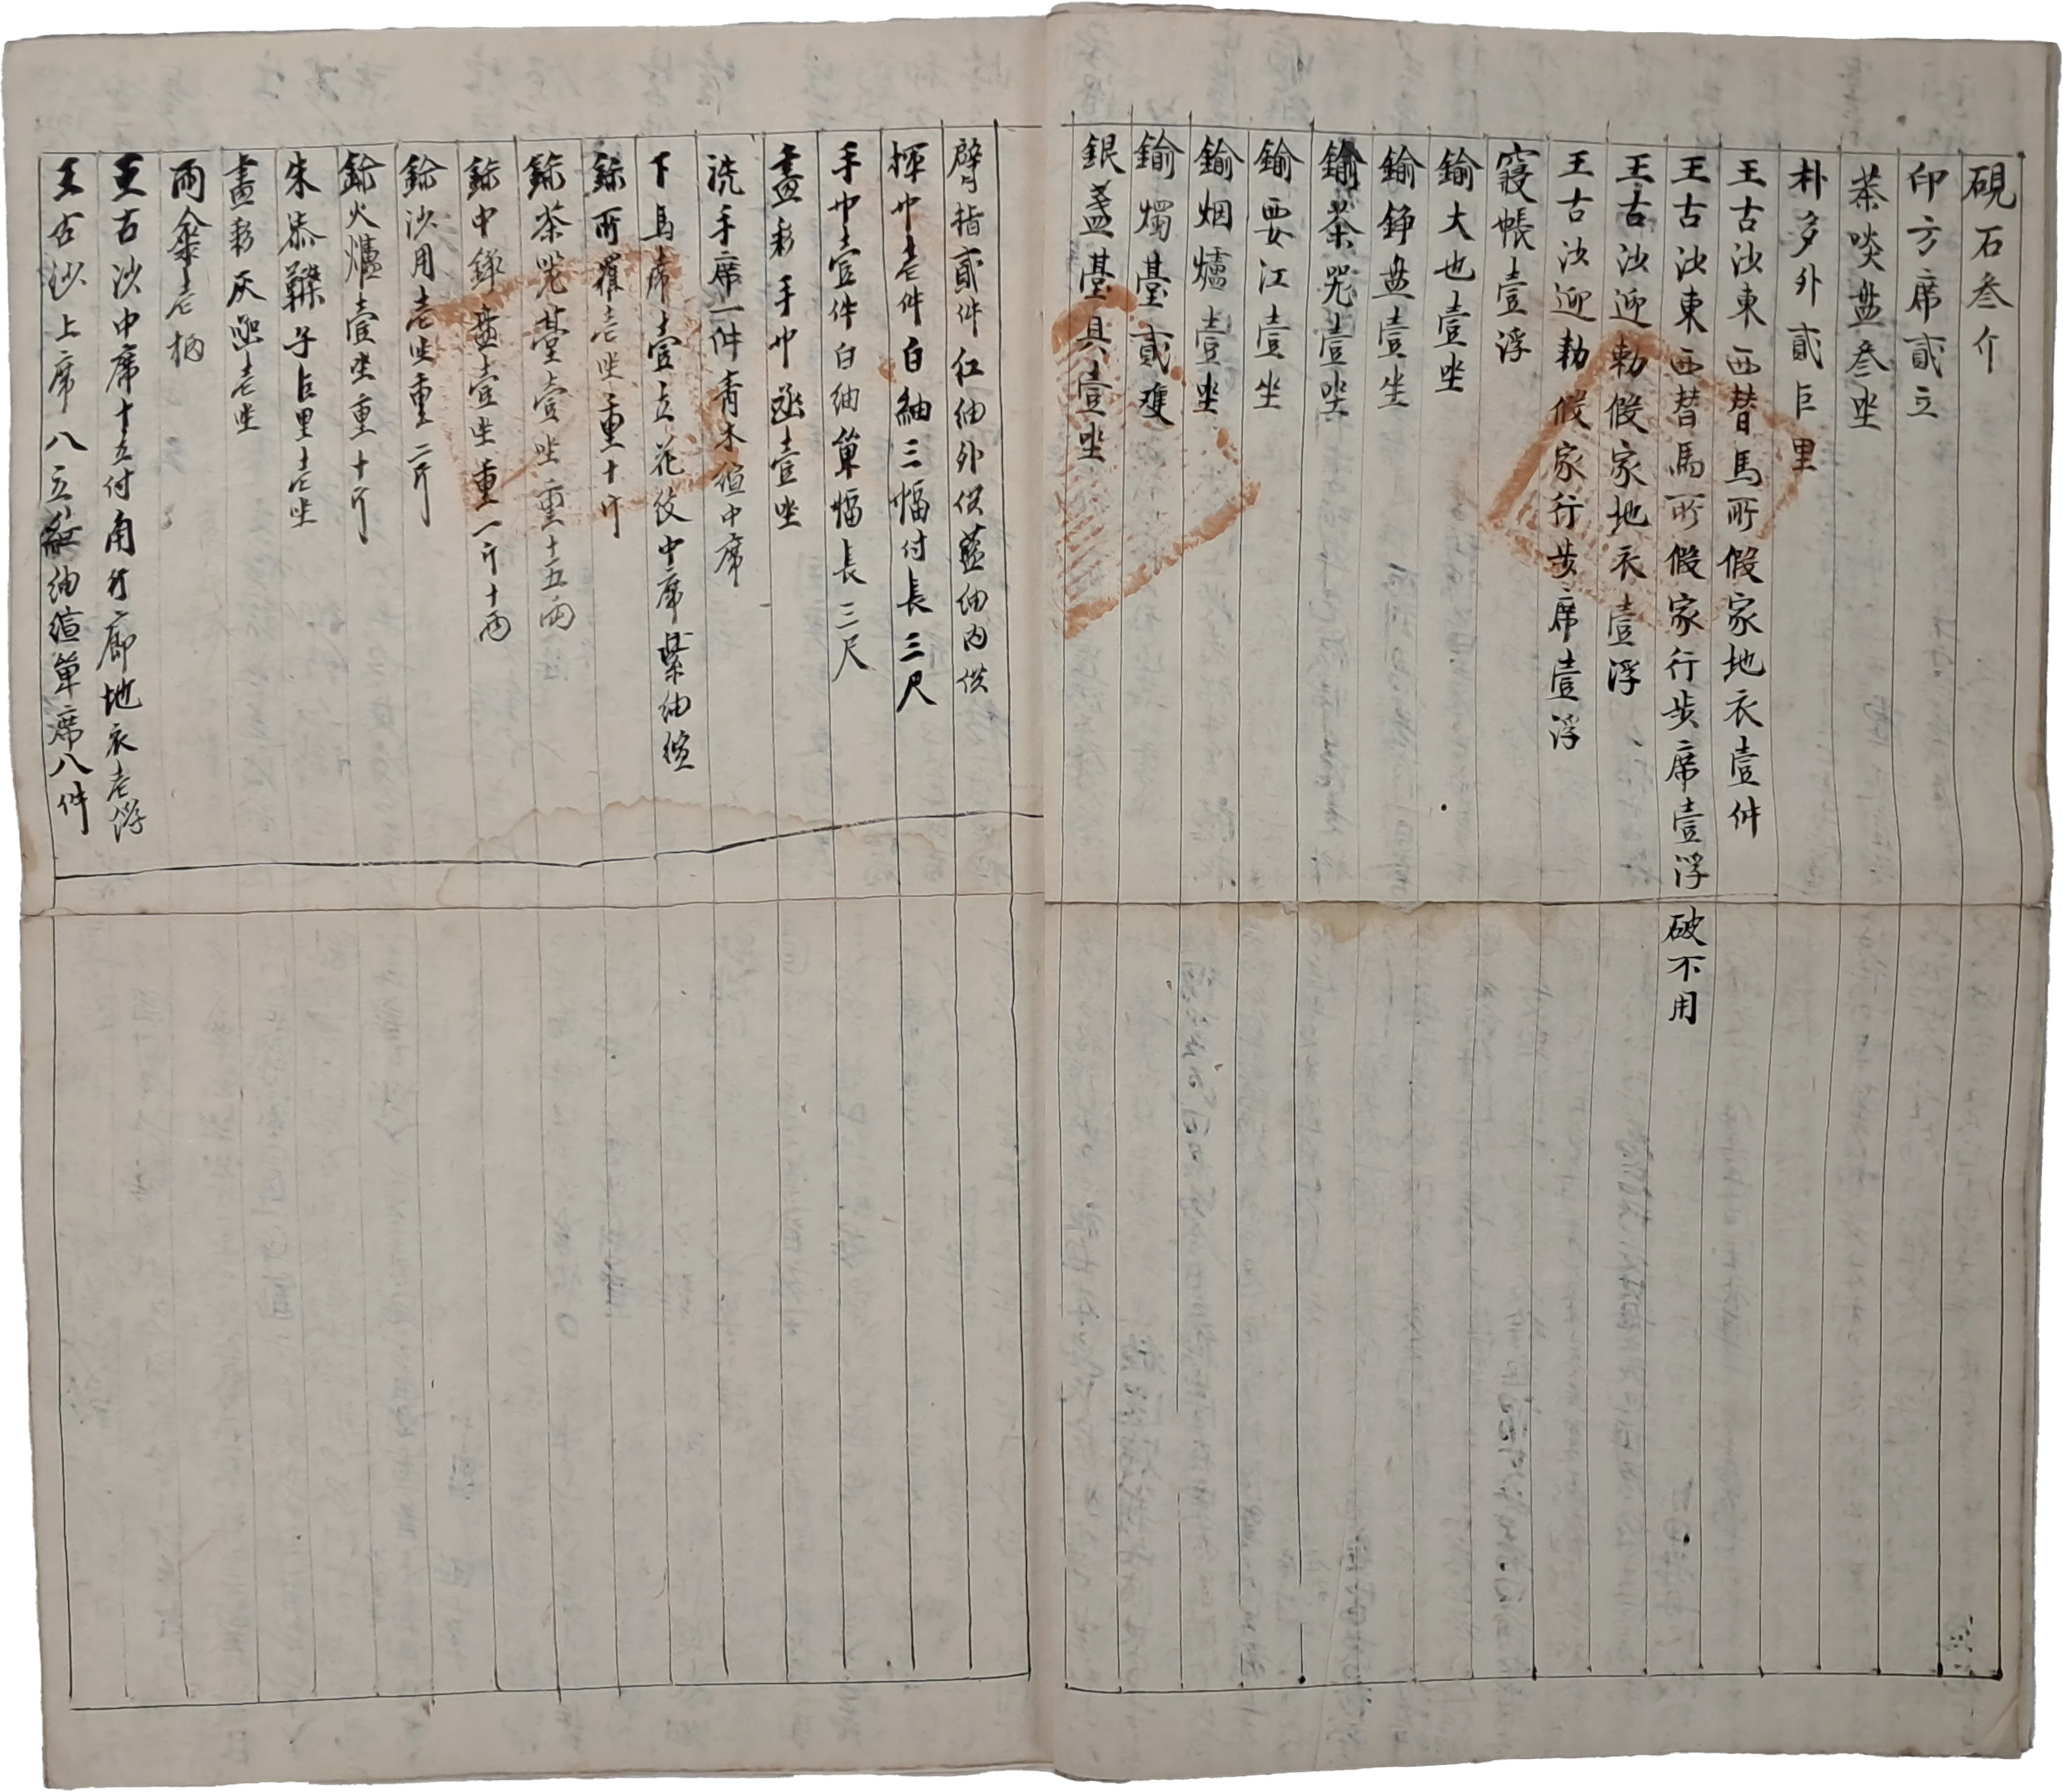 硯石叁介
印方席貳立
茶啖盘叁坐
朴多外貳巨里
王古汝東西替馬所假家地衣壹件
王古汝東西替馬所假家行步席壹浮 破不用
王古汝迎勅假家地衣壹浮
王古汝迎勅假家行步席壹浮
寢帳壹浮
鍮大也壹坐
鍮錚盘壹坐
鍮茶罖壹坐
鍮要江壹坐
鍮烟爐壹坐
鍮燭臺貳雙
銀盞臺具壹坐
臂指貳件红紬外供藍紬内供
揮巾壱件白紬三幅付長三尺
手巾壹件白紬單幅長三尺
畫彩手巾凾壹坐
洗手席一件靑木縇中席
下馬席壹立花纹中席紫紬縇
鍮所羅壱坐重十斤
鍮茶罖臺壹坐重十五兩
鍮中錚盘壹坐重一斤十兩
鍮沙用壱坐重二斤
鍮火爐壹坐重十斤
朱漆鞦子巨里壱坐
畫彩灰凾壱坐
雨傘壱柄
王古沙中席十五付角行廊地衣壱浮
王古沙上席八立紅紬縇單席八件